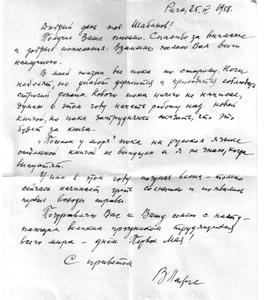 Рига, 25.IV 1958.
Добрый день тов. Шабанов!
Получил Ваше письмо. Спасибо за внимание
и добрые пожелания. Взаимно желаю Вам всего
наилучшего.
В моей жизни все пока по старому. Ноги
не болят, но диабет держится и приходится соблюдать
строгий режим. Нового пока ничего не написал,
думаю в этом году начать работу над новой
книгой, но пока затрудняюсь сказать, что это
будет за книга.
"Поселок у моря" пока на русском языке
отдельной книгой не выпущен и я не знаю, когда
выпустят.
У нас в этом году поздняя весна – только
сейчас начинает греть солнышко и появились
первые всходы травы.
Поздравляю Вас и Вашу семью с насту-
пающим великим праздником трудящихся
всего мира – днём Первое Мая!
С приветом
В Лацис